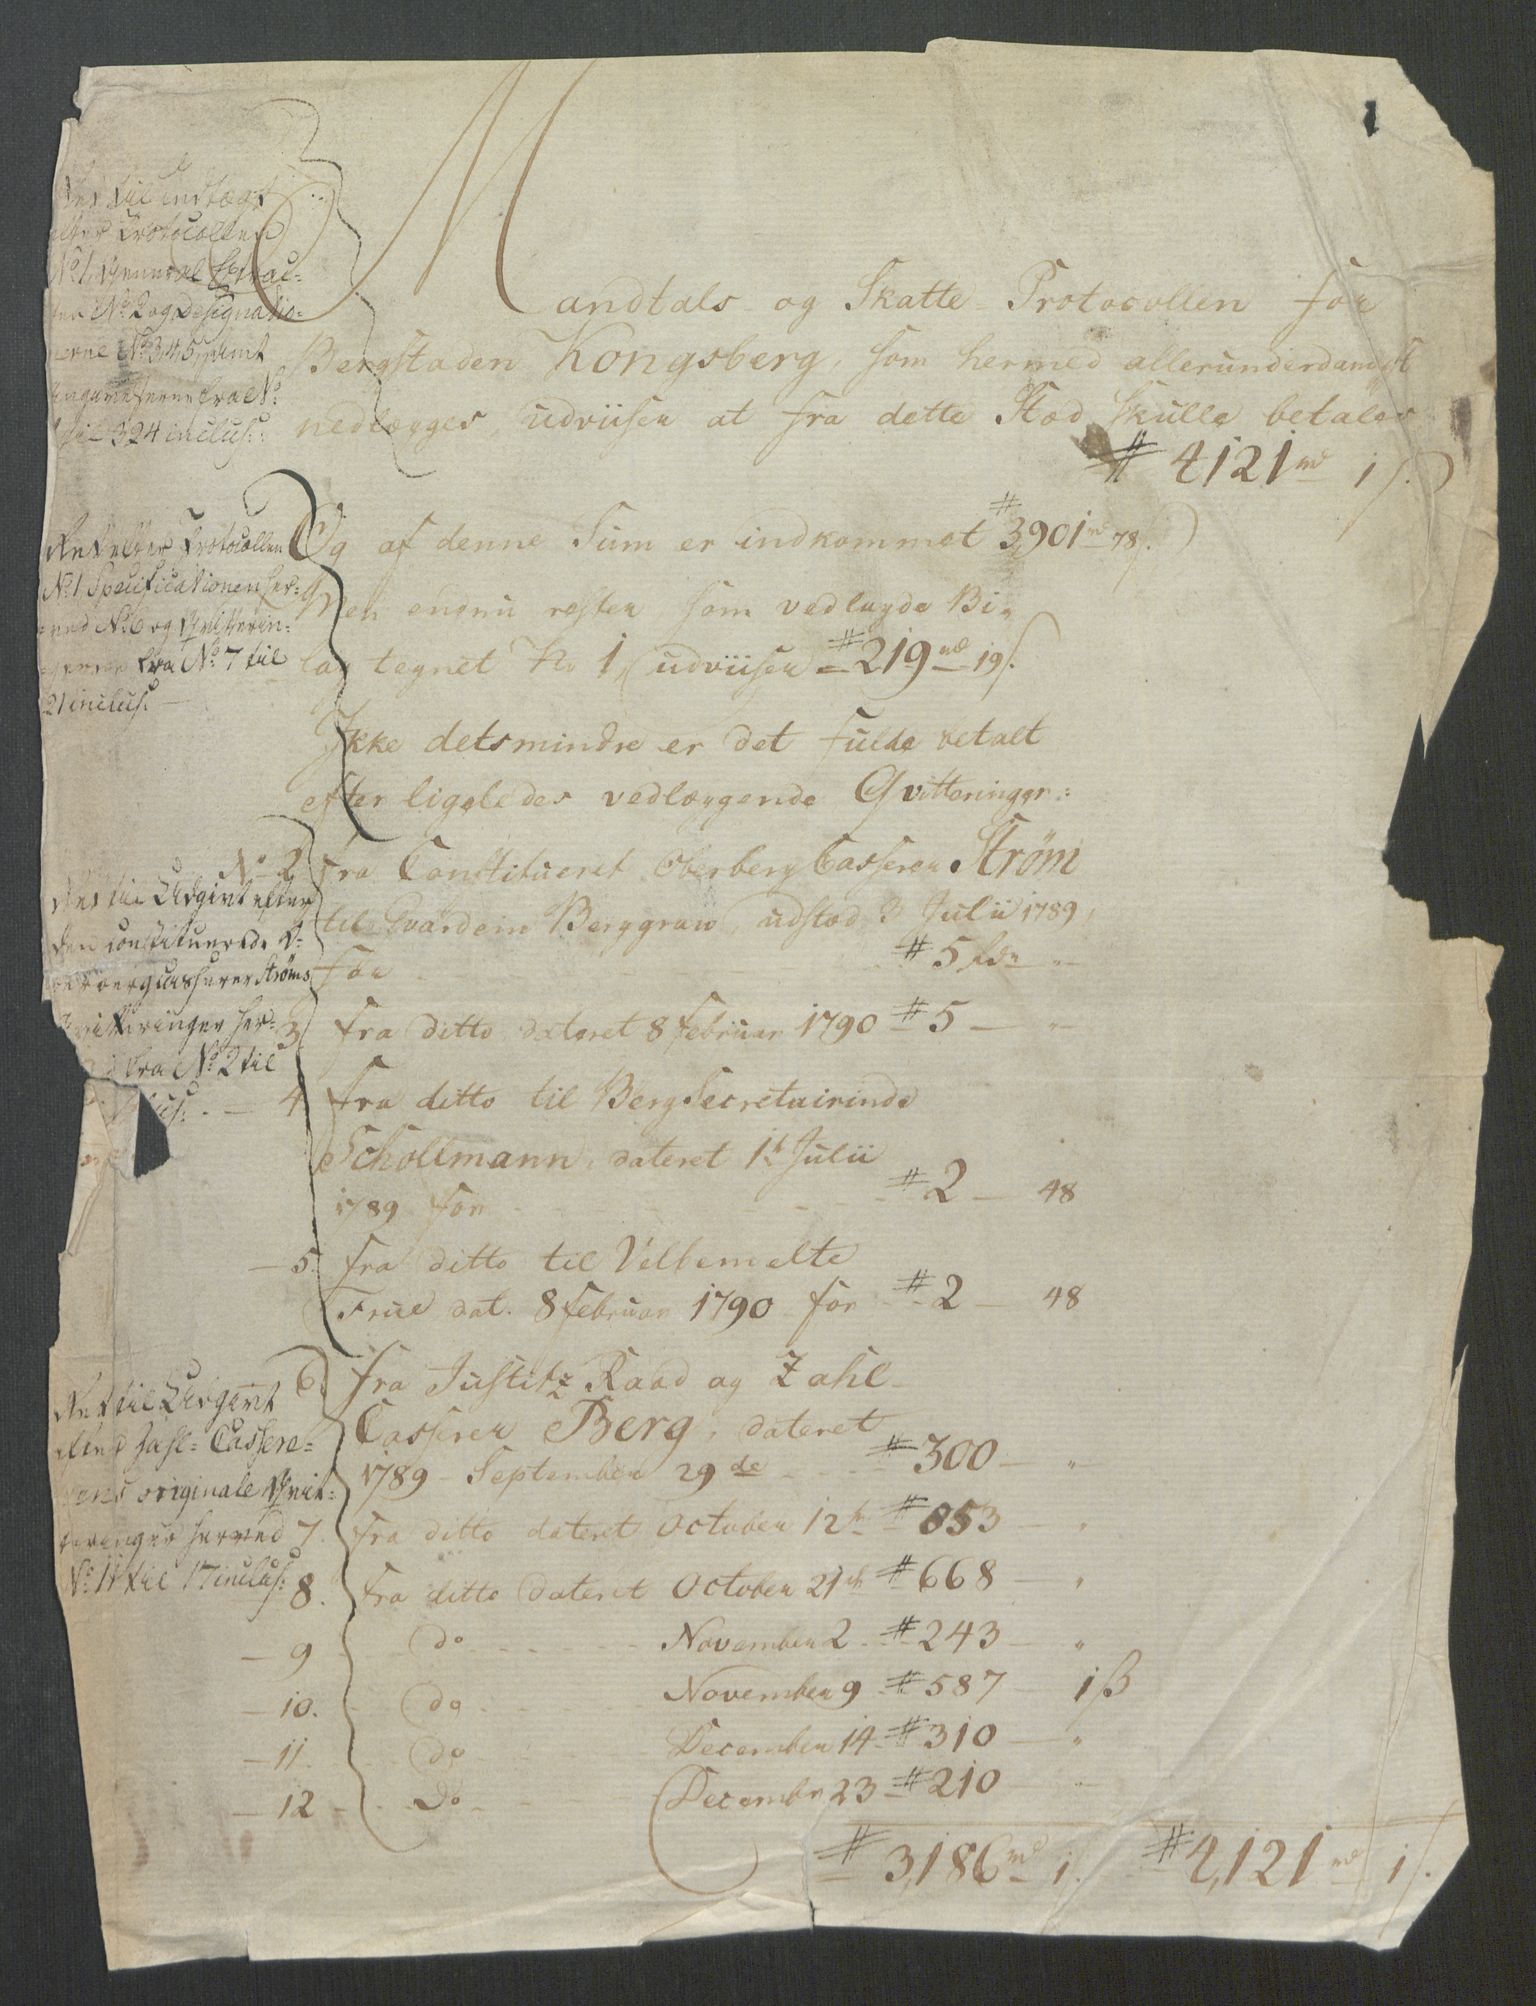 1
Mandtals og Skatte Protocollen for
Bergstaden Kongsberg, som hermed allerunderdanigst
nedlægges, udviiser at fra dette Stæd skulle betales
# 4121 md 1 s.
Og af denne Sum er indkommet # 3,901 md 78 s.
Men endnu rester som vedlagde Bi-
lag tegnet No 1, udviiser # 219 md 19 s.
Ikke detsmindre er det fulde betalt
efter ligeledes vedlæggende Qvitteringer:
No 2 fra Constitueret Oberberg Casserer Ström
til Gvardein Berggrau, udstæd 3 Julii 1789,
for # 5 rdr "
3 fra ditto dateret 8 Februar 1790 # 5 — "
4 fra ditto til BergSecretairinde
Schollmann, dateret 1t Julii
1789 for # 2 — 48
— 5. fra ditto til Velbemelte
Frue dat. 8 Februar 1790 for # 2 — 48
6. fra Justitz Raad og Zahl-
Casserer Berg, dateret
1789 - September 29de # 300 — "
7. fra ditto dateret October 12te # 853 — "
8. fra ditto dateret October 21de # 668 — "
— 9 do November 2 # 243 — "
— 10. do November 9 # 587 — 1 ß
— 11 do December 14 # 310 — "
— 12 Do Decembr 23 # 210 — "
# 3,186 md 1 s. # 4,121 md 1 s.
til Indtægt
efter Protocollen
No 1, General Extrac-
ten No 2 og Designatio-
nerne No 3, 4, 5, samt
fra No
til 324 inclus:
Rev. efter Protocollen
No 1 Specificationen her-
ved No 6 og Qvitterin-
gerne fra No 7 til
21 inclus: —
Rev. til Udgivt efter
den constituerede O-
berbergcasserer Ströms
Qvitteringer her-
ved fra No 2 til
inclus: —
Rev. til Udgivt
efter Zahl-Cassere-
rens originale Qvit-
teringer herved
No 11 til 17 inclus: